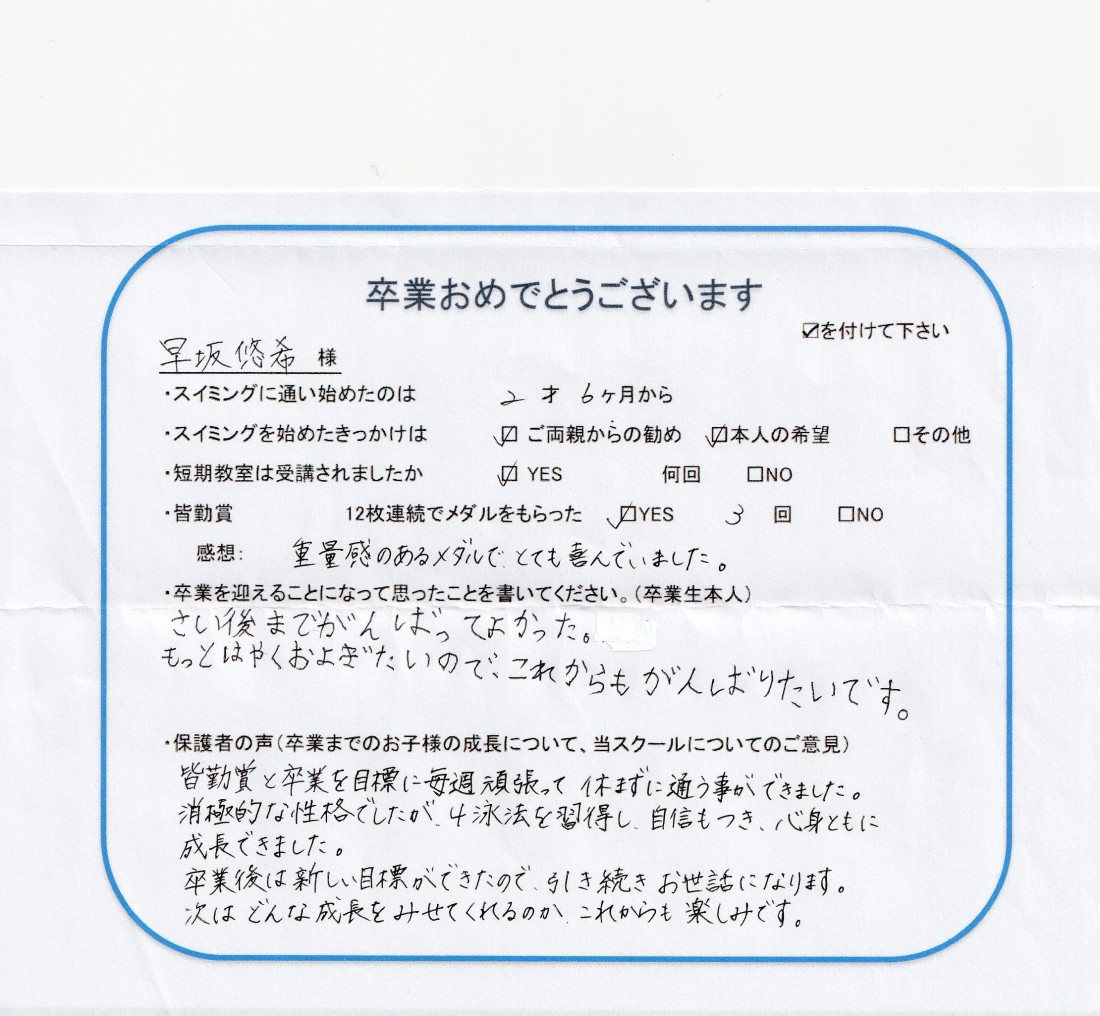 卒業おめでとうございます
☑を付けて下さい
早坂悠希 様
・スイミングに通い始めたのは 2 才 6ヶ月から
・スイミングを始めたきっかけは ☑ ご両親からの勧め ☑本人の希望 □その他
・短期教室は受講されましたか ☑ YES 何回 □NO
・皆勤賞 12枚連続でメダルをもらった ☑YES 3 回 □NO
感想: 重量感のあるメダルで、とても喜んでいました。
・卒業を迎えることになって思ったことを書いてください。(卒業生本人)
さい後までがんばってよかった。
もっとはやくおよぎたいので、これからもがんばりたいです。
・保護者の声(卒業までのお子様の成長について、当スクールについてのご意見)
皆勤賞と卒業を目標に毎週頑張って休まずに通う事ができました。
消極的な性格でしたが、4泳法を習得し、自信もつき、心身ともに
成長できました。
卒業後は新しい目標ができたので、引き続きお世話になります。
次はどんな成長をみせてくれるのか、これからも楽しみです。